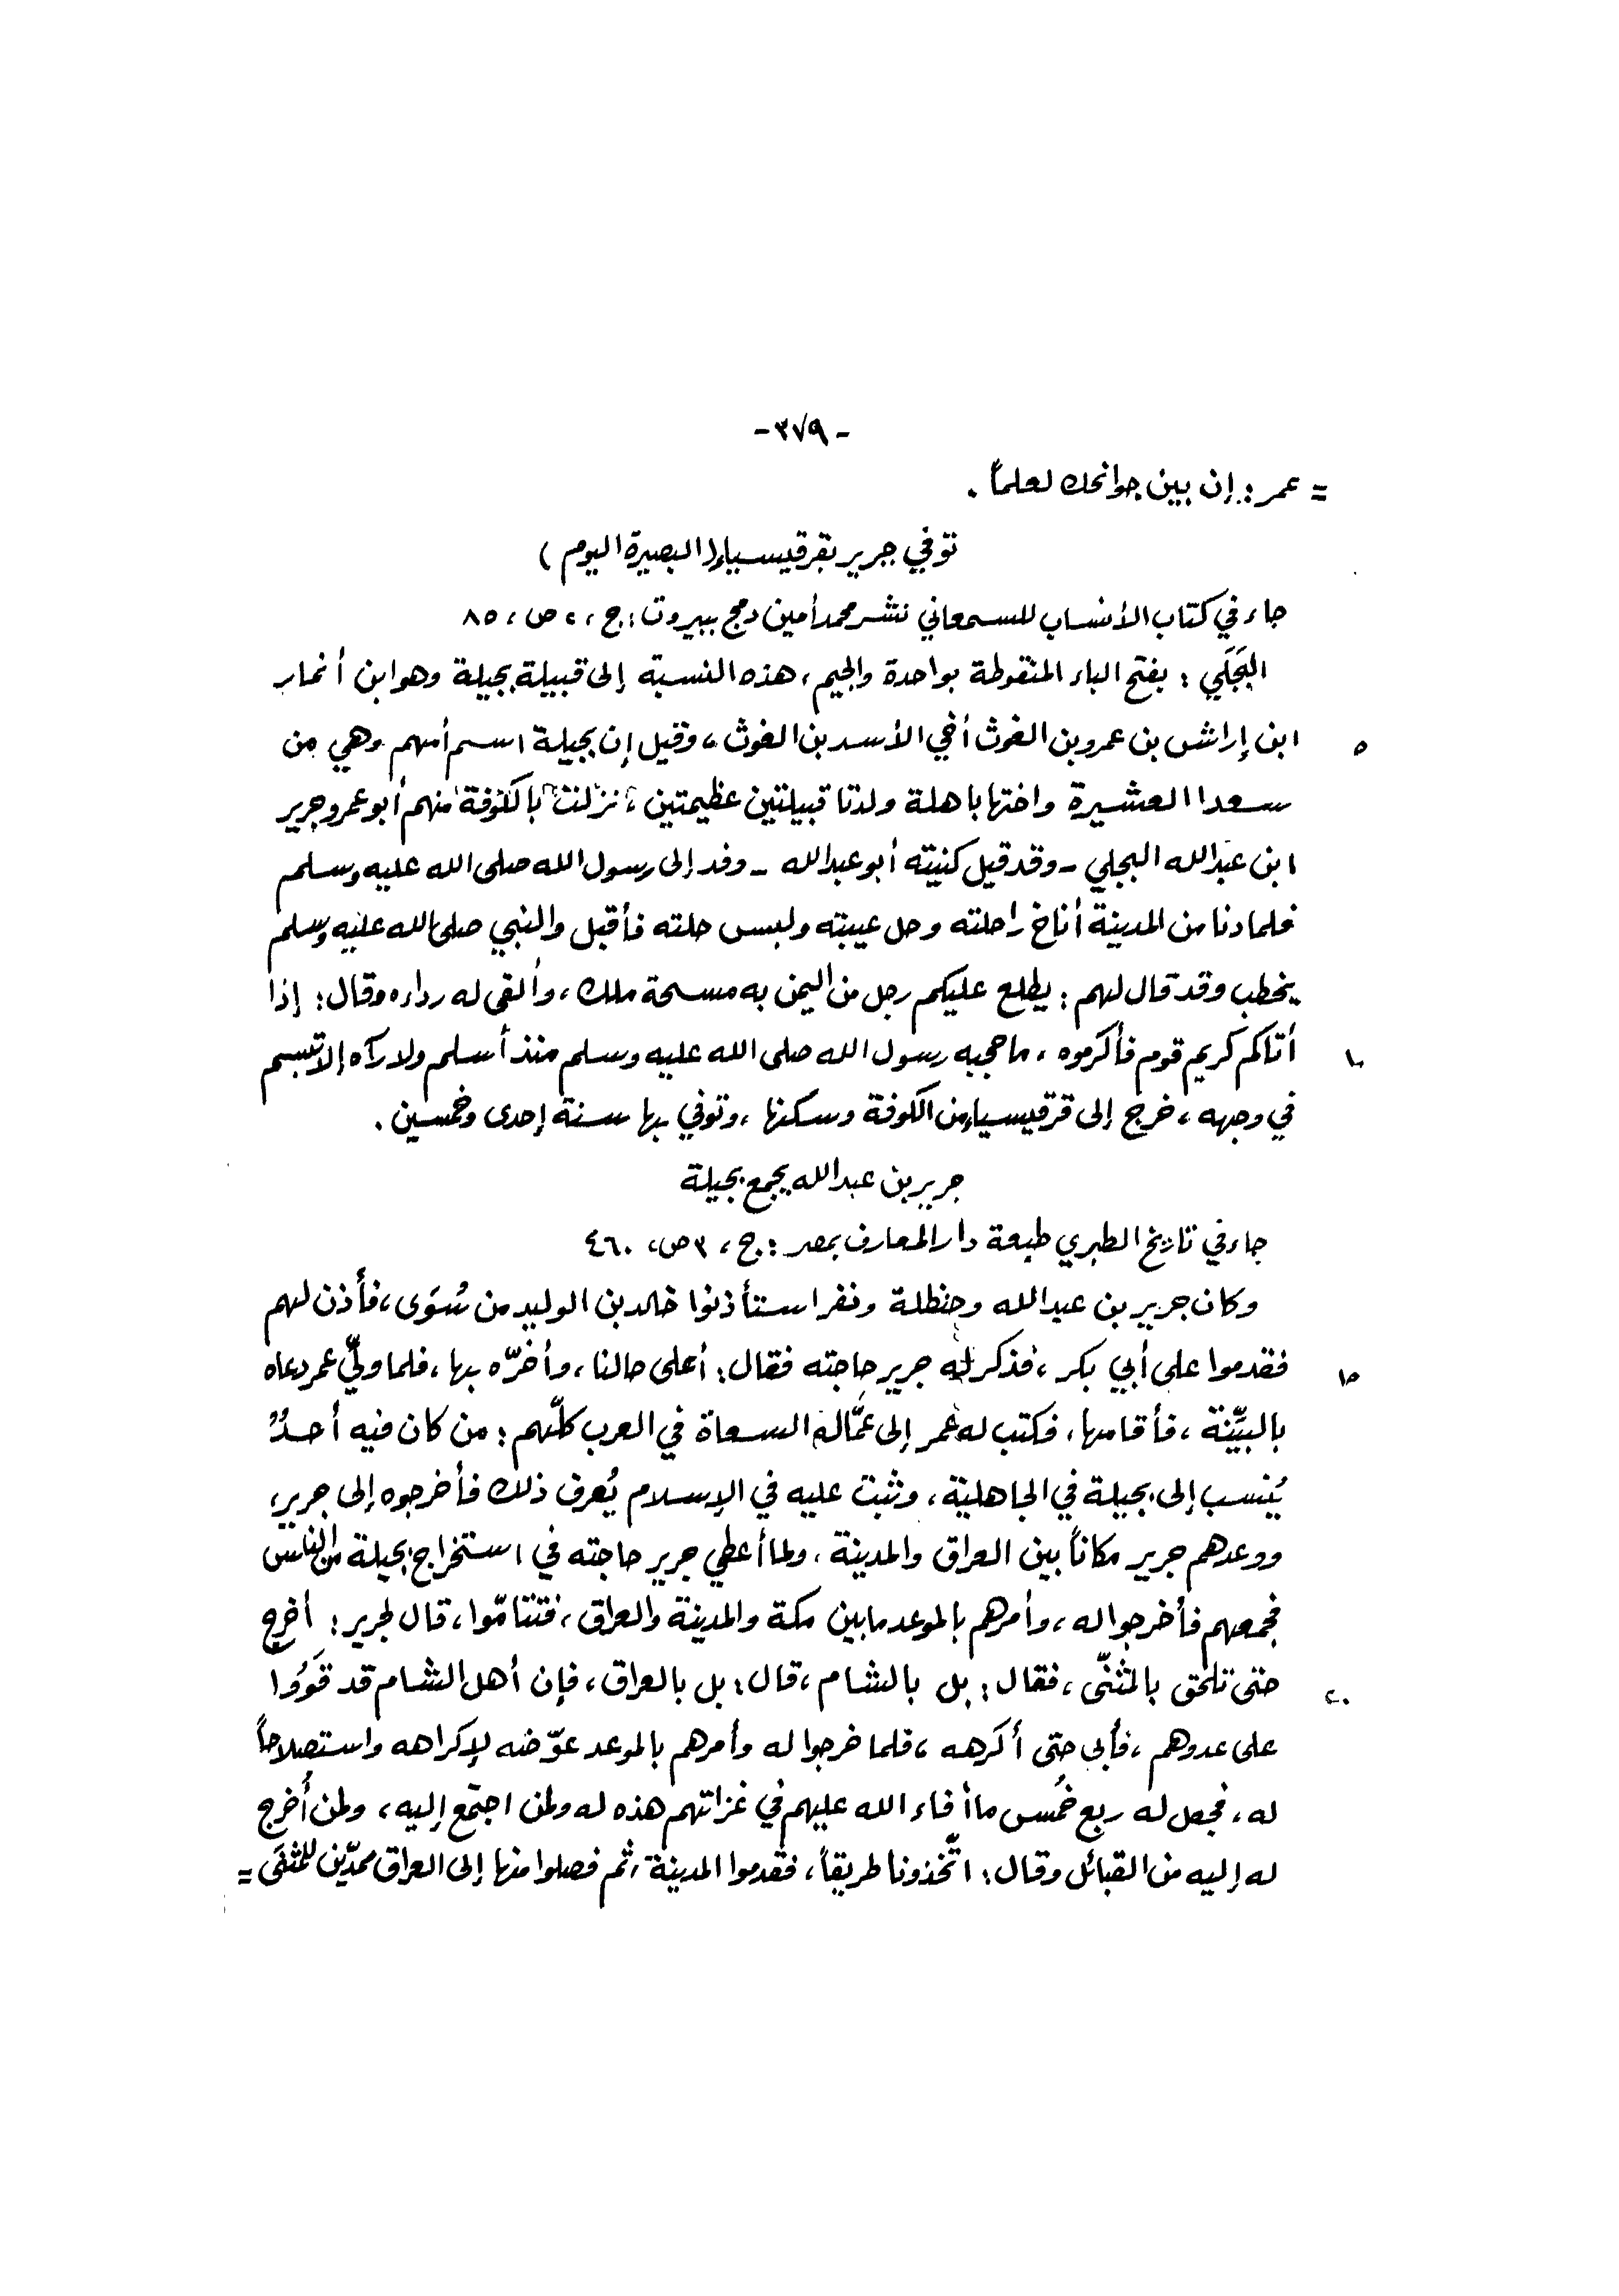 -٣٧٩-
= عمر: إن بين جوانحك لعلماً.
توفي جرير بقرقيسياء (البصيرة اليوم)
جاء في كتاب الأنساب للسمعاني نشر محمد أمين دمج ببيروت: ج، ٢ ص، ٨٥
البَجَلي: بفتح الباء المنقوطة بواحدة والجيم، هذه النسبة إلى قبيلة بجيلة وهو ابن أنمار
٥ ابن إراش بن عمرو بن الغوث أخي الأسد بن الغوث، وقيل إن بجيلة اسم أمهم وهي من
سعد العشيرة واختها باهلة ولدتا قبيلتين عظيمتين، نزلت بالكوفة منهم أبو عمرو جرير
ابن عبد الله البجلي - وقد قيل كنيته أبو عبد الله - وفد إلى رسول الله صلى الله عليه وسلم
فلما دنا من المدينة أناخ راحلته وحل عيبته ولبس حلته فأقبل والنبي صلى الله عليه وسلم
يخطب وقد قال لهم: يطلع عليكم رجل من اليمن به مسحة ملك، وألقى له رداءه وقال: إذا
١٠ أتاكم كريم قوم فأكرموه، ما حجبه رسول الله صلى الله عليه وسلم منذ أسلم ولا رآه إلا تبسم
في وجهه، خرج إلى قرقيسياء من الكوفة وسكنها، وتوفي بها سنة إحدى وخمسين.
جرير بن عبد الله يجمع بجيلة
جاء في تاريخ الطبري طبعة دار المعارف بمصر: ج، ٣ ص، ٤٦٠
وكان جرير بن عبد الله وحنظلة ونفر استأذنوا خالد بن الوليد من سُوَى، فأذن لهم
١٥ فقدموا على أبي بكر، فذكر له جرير حاجته فقال: أعلى حالنا، وأخّره بها، فلما ولّي عمر دعاه
بالبيِّنة، فأقامها، فكتب له عمر إلى عمَّاله السعاة في العرب كلّهم: من كان فيه أحدٌ
يُنسب إلى بجيلة في الجاهلية، وثبت عليه في الإسلام يُعرف ذلك فأخرجوه إلى جرير،
ووعدهم جرير مكاناً بين العراق والمدينة، ولما أعطي جرير حاجته في استخراج بجيلة من الناس
فجمعهم فأخرجوا له، وأمرهم بالموعد ما بين مكة والمدينة والعراق، فتتامّوا، قال لجرير: أخرج
٢٠ حتى تلحق بالمثنّى، فقال: بل بالشام، قال: بل بالعراق، فإن أهل الشام قد قَوُوا
على عدوهم، فأبى حتى أكرهه، فلما خرجوا له وأمرهم بالموعد عوّضه لإكراهه واستصلاحاً
له، فجعل له ربع خُمس ما أفاء الله عليهم في غزاتهم هذه له ولمن اجتمع إليه، ولمن أُخرج
له إليه من القبائل وقال: اتّخذونا طريقاً، فقدموا المدينة، ثم فصلوا منها إلى العراق ممدّين للمثنى =